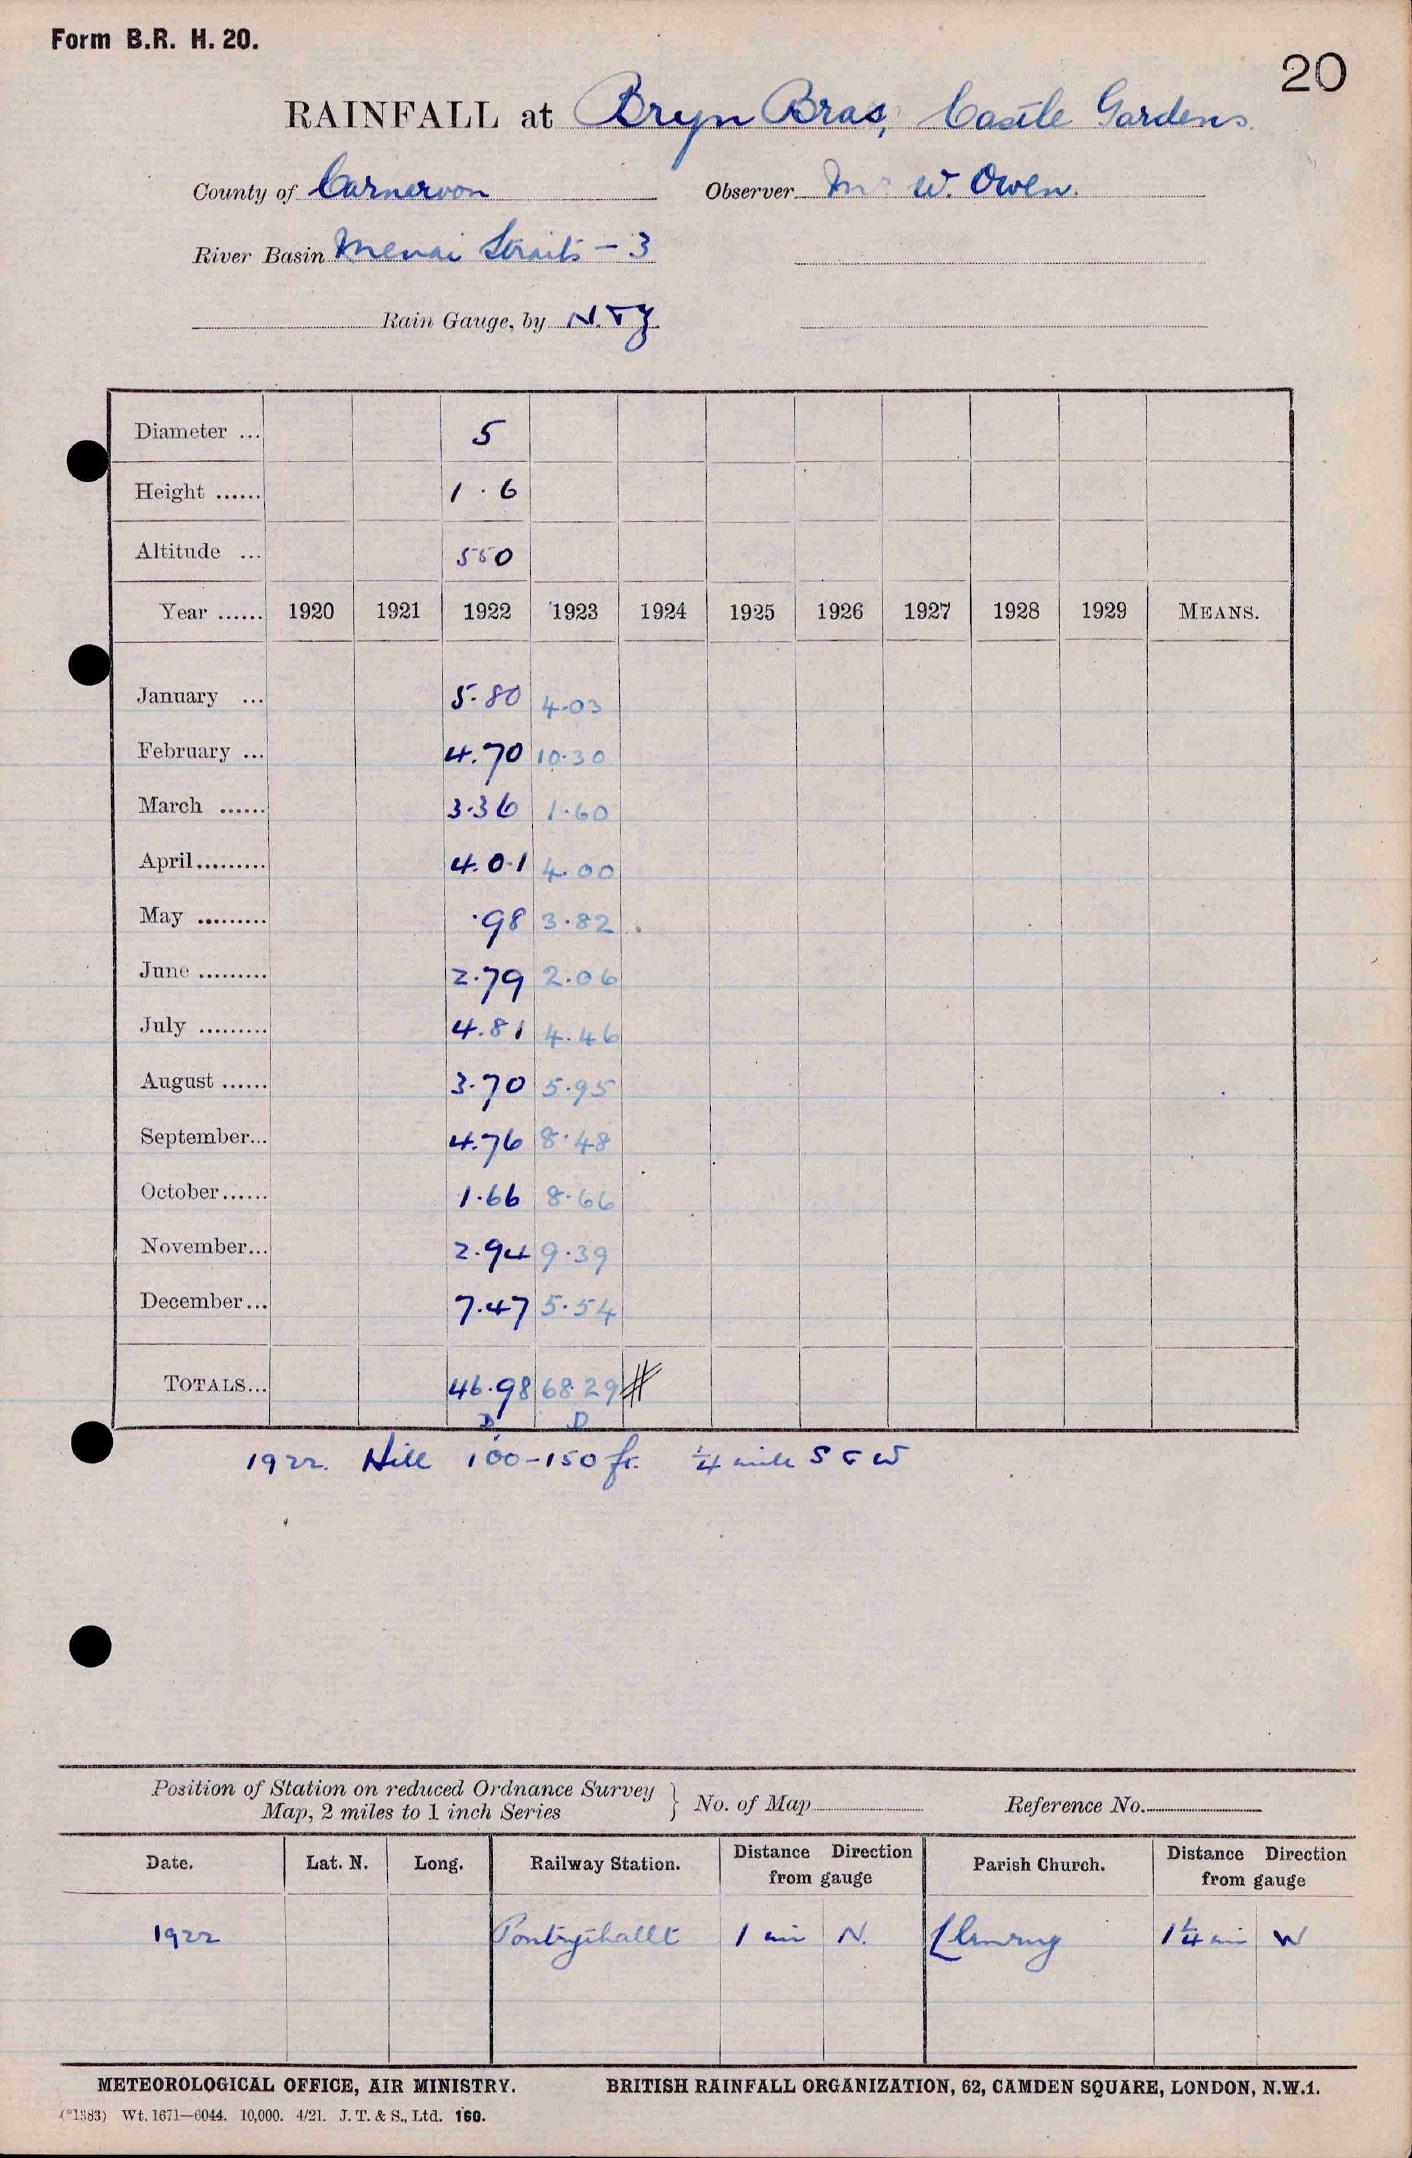 Form B.R. H. 20.
20
RAINFALL at Bryn Bras, Castle Gardens.
County of Carnarvon Observer Mr W. Owen.
River Basin Menai Straits - 3
Rain Gauge, by N. & Z.
Diameter ... 5
Height ...... 1 . 6
Altitude ... 550
Year ...... 1920 1921 1922 1923 1924 1925 1926 1927 1928 1929 MEANS.
January ... 5.80 4.03
February ... 4.70 10.30
March ...... 3.36 1.60
April......... 4.01 4.00
May ......... .98 3.82
June ......... 2.79 2.06
July ......... 4.81 4.46
August ...... 3.70 5.95
September... 4.76 8.48
October...... 1.66 8.66
November... 2.94 9.39
December... 7.47 5.54
TOTALS... 46.98 68.29 #
D D
1922. Hill 100-150 ft. ¼ mile S & W
Position of Station on reduced Ordnance Survey
Map, 2 miles to 1 inch Series } No. of Map Reference No.
Date. Lat. N. Long. Railway Station. Distance Direction from gauge Parish Church. Distance Direction from gauge
1922 Pontrythallt 1 mi N. Llanrug 1¼ mi W
METEOROLOGICAL OFFICE, AIR MINISTRY. BRITISH RAINFALL ORGANIZATION, 62, CAMDEN SQUARE, LONDON, N.W.1.
(*1383) Wt. 1671—6044. 10,000. 4/21. J. T. & S., Ltd. 160.